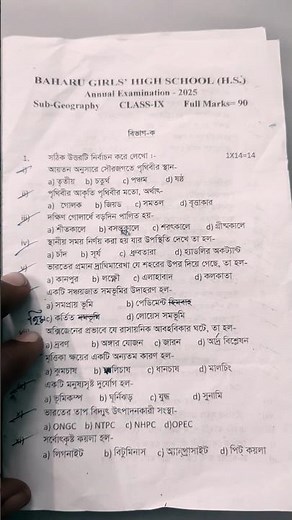 BAHARU GIRLS' HIGH SCHOOL (H.S.)
Annual Examination - 2025
Sub-Geography CLASS-IX Full Marks= 90
বিভাগ-ক
1. সঠিক উত্তরটি নির্বাচন করে লেখো :- 1X14=14
i) আয়তন অনুসারে সৌরজগতে পৃথিবীর স্থান-
a) তৃতীয় b) চতুর্থ c) পঞ্চম d) ষষ্ঠ
ii) পৃথিবীর আকৃতি পৃথিবীর মতো, অর্থাৎ-
a) গোলক b) জিয়ড c) সমতল d) বৃত্তাকার
iii) দক্ষিণ গোলার্ধে বড়দিন পালিত হয়-
a) শীতকালে b) বসন্তকালে c) শরৎকালে d) গ্রীষ্মকালে
iv) স্থানীয় সময় নির্ণয় করা হয় যার উপস্থিতি দেখে তা হল-
a) চাঁদ b) সূর্য c) ধ্রুবতারা d) হ্যাডলির অকট্যান্ট
v) ভারতের প্রমান দ্রাঘিমারেখা যে শহরের উপর দিয়ে গেছে, তা হল-
a) কানপুর b) লক্ষ্ণৌ c) এলাহাবাদ d) কলকাতা
একটি সঞ্চয়জাত সমভূমির উদাহরণ হল-
a) সমপ্রায় ভূমি b) পেডিমেন্ট
c) কর্তিত d) লোয়েস সমভূমি
অক্সিজেনের প্রভাবে যে রাসায়নিক আবহবিকার ঘটে, তা হল-
a) দ্রবণ b) অঙ্গার যোজন c) জারন d) আর্দ্র বিশ্লেষন
মৃত্তিকা ক্ষয়ের একটি অন্যতম কারণ হল-
a) ঝুমচাষ b) ফালিচাষ c) ধানচাষ d) মালচিং
একটি মনুষ্যসৃষ্ট দুর্যোগ হল-
a) ভূমিকম্প b) ঘূর্নিঝড় c) যুদ্ধ d) সুনামি
ভারতের তাপ বিদ্যুৎ উৎপাদনকারী সংস্থা-
a) ONGC b) NTPC c) NHPC d)OPEC
সর্বোৎকৃষ্ট কয়লা হল-
a) লিগনাইট b) বিটুমিনাস c) অ্যানথ্রাসাইট d) পিট কয়লা